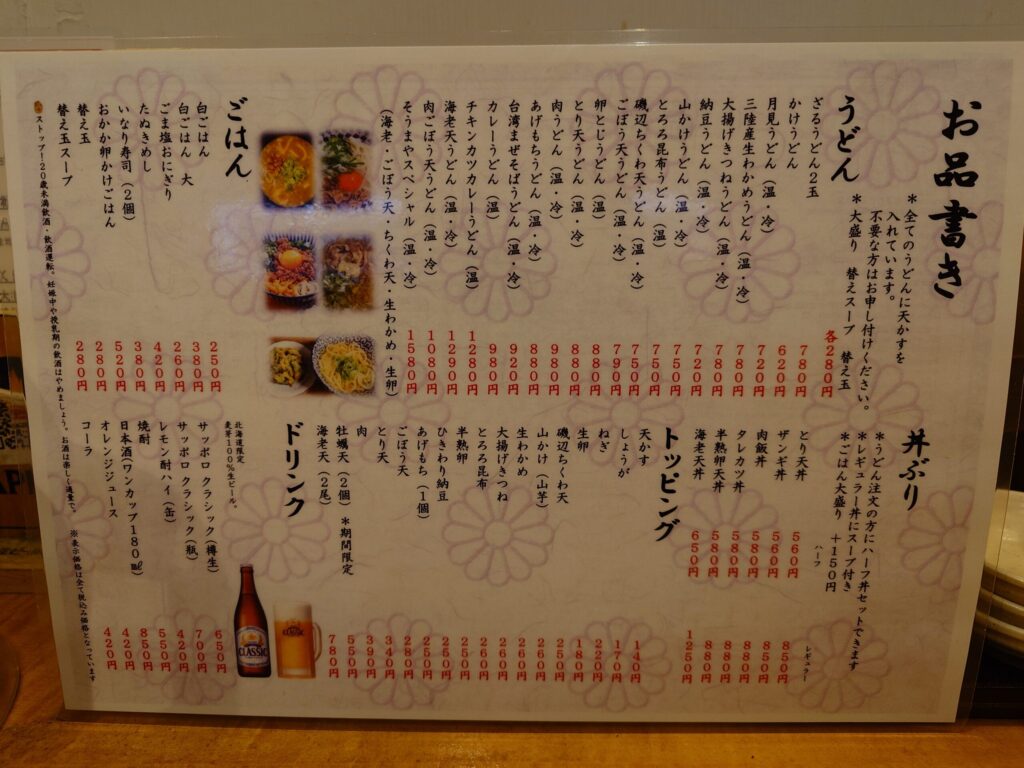 お品書き
うどん
*全てのうどんに天かすを
入れています。
不要な方はお申し付けください。
*大盛り 替えスープ 替え玉 各280円
ざるうどん2玉 780円
かけうどん 620円
月見うどん(温・冷) 720円
三陸産生わかめうどん(温・冷) 780円
大揚げきつねうどん(温・冷) 780円
納豆うどん(温・冷) 720円
山かけうどん(温・冷) 750円
とろろ昆布うどん(温) 750円
磯辺ちくわ天うどん(温・冷) 750円
ごぼう天うどん(温・冷) 790円
卵とじうどん(温) 880円
とり天うどん(温・冷) 880円
肉うどん(温・冷) 880円
あげもちうどん(温・冷) 980円
台湾まぜそばうどん(温・冷) 920円
カレーうどん(温) 980円
チキンカツカレーうどん(温) 1280円
海老天うどん(温・冷) 1220円
肉ごぼう天うどん(温・冷) 1080円
そうまやスペシャル(温・冷) 1580円
(海老・ごぼう天・ちくわ天・生わかめ・生卵)
ごはん
白ごはん 250円
白ごはん 大 380円
ごま塩おにぎり 260円
たぬきめし 420円
いなり寿司(2個) 380円
おかか卵かけごはん 520円
替え玉 280円
替え玉スープ 280円
丼ぶり
*うどん注文の方にハーフ丼セットできます
*レギュラー丼にスープ付き
*ごはん大盛り +150円
ハーフ レギュラー
とり天丼 560円 850円
ザンギ丼 560円 850円
肉飯丼 580円 880円
タレカツ丼 580円 880円
半熟卵天丼 580円 880円
海老天丼 650円 1250円
トッピング
天かす 140円
しょうが 170円
ねぎ 220円
生卵 180円
磯辺ちくわ天 250円
山かけ(山芋) 260円
生わかめ 260円
大揚げきつね 260円
とろろ昆布 260円
半熟卵 250円
ひきわり納豆 250円
あげもち(1個) 280円
ごぼう天 340円
とり天 390円
肉 390円
牡蠣天(2個)*期間限定 550円
海老天(2尾) 780円
ドリンク
北海道限定
麦芽100%生ビール。
サッポロ クラシック(樽生) 650円
サッポロ クラシック(瓶) 700円
レモン酎ハイ(缶) 420円
焼酎 550円
日本酒(ワンカップ180㎖) 850円
オレンジジュース 420円
コーラ 420円
CLASSIC
CLASSIC
ストップ!20歳未満飲酒・飲酒運転。妊娠中や授乳期の飲酒はやめましょう。お酒は楽しく適量で。
※表示価格は全て税込み価格となっています